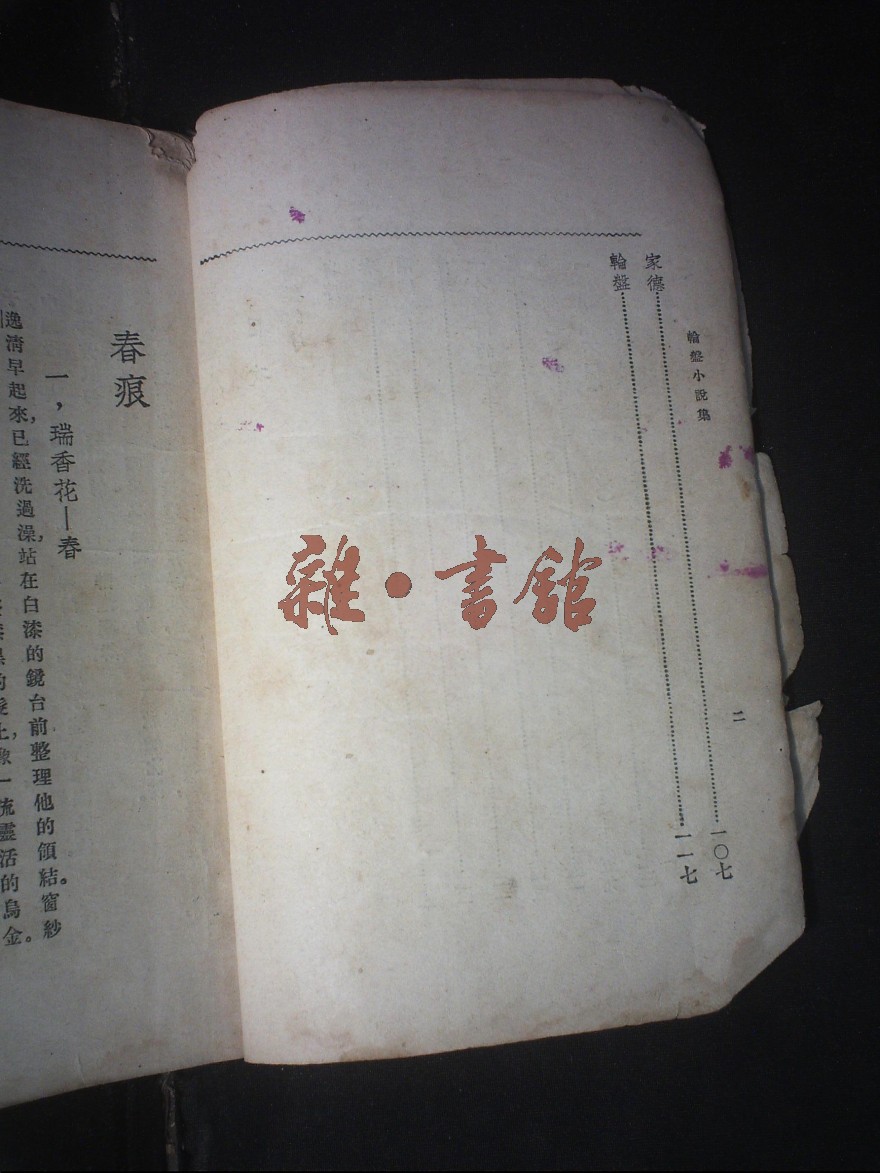 輪盤小說集
二
家德……一〇七
輪盤……一一七
雜・書舘
春痕
一，瑞香花—春
逸清早起來，已經洗過澡，站在白漆的鏡台前整理他的領結。窗紗
的髮上，像一流靈活的烏金。